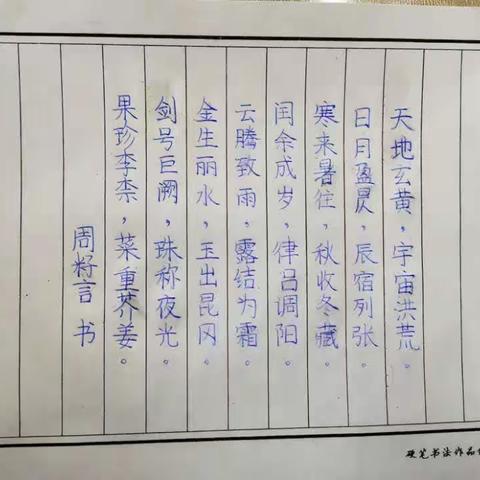 天地玄黄，宇宙洪荒。
日月盈昃，辰宿列张。
寒来暑往，秋收冬藏。
闰余成岁，律吕调阳。
云腾致雨，露结为霜。
金生丽水，玉出昆冈。
剑号巨阙，珠称夜光。
果珍李柰，菜重芥姜。
周籽言 书
硬笔书法作品